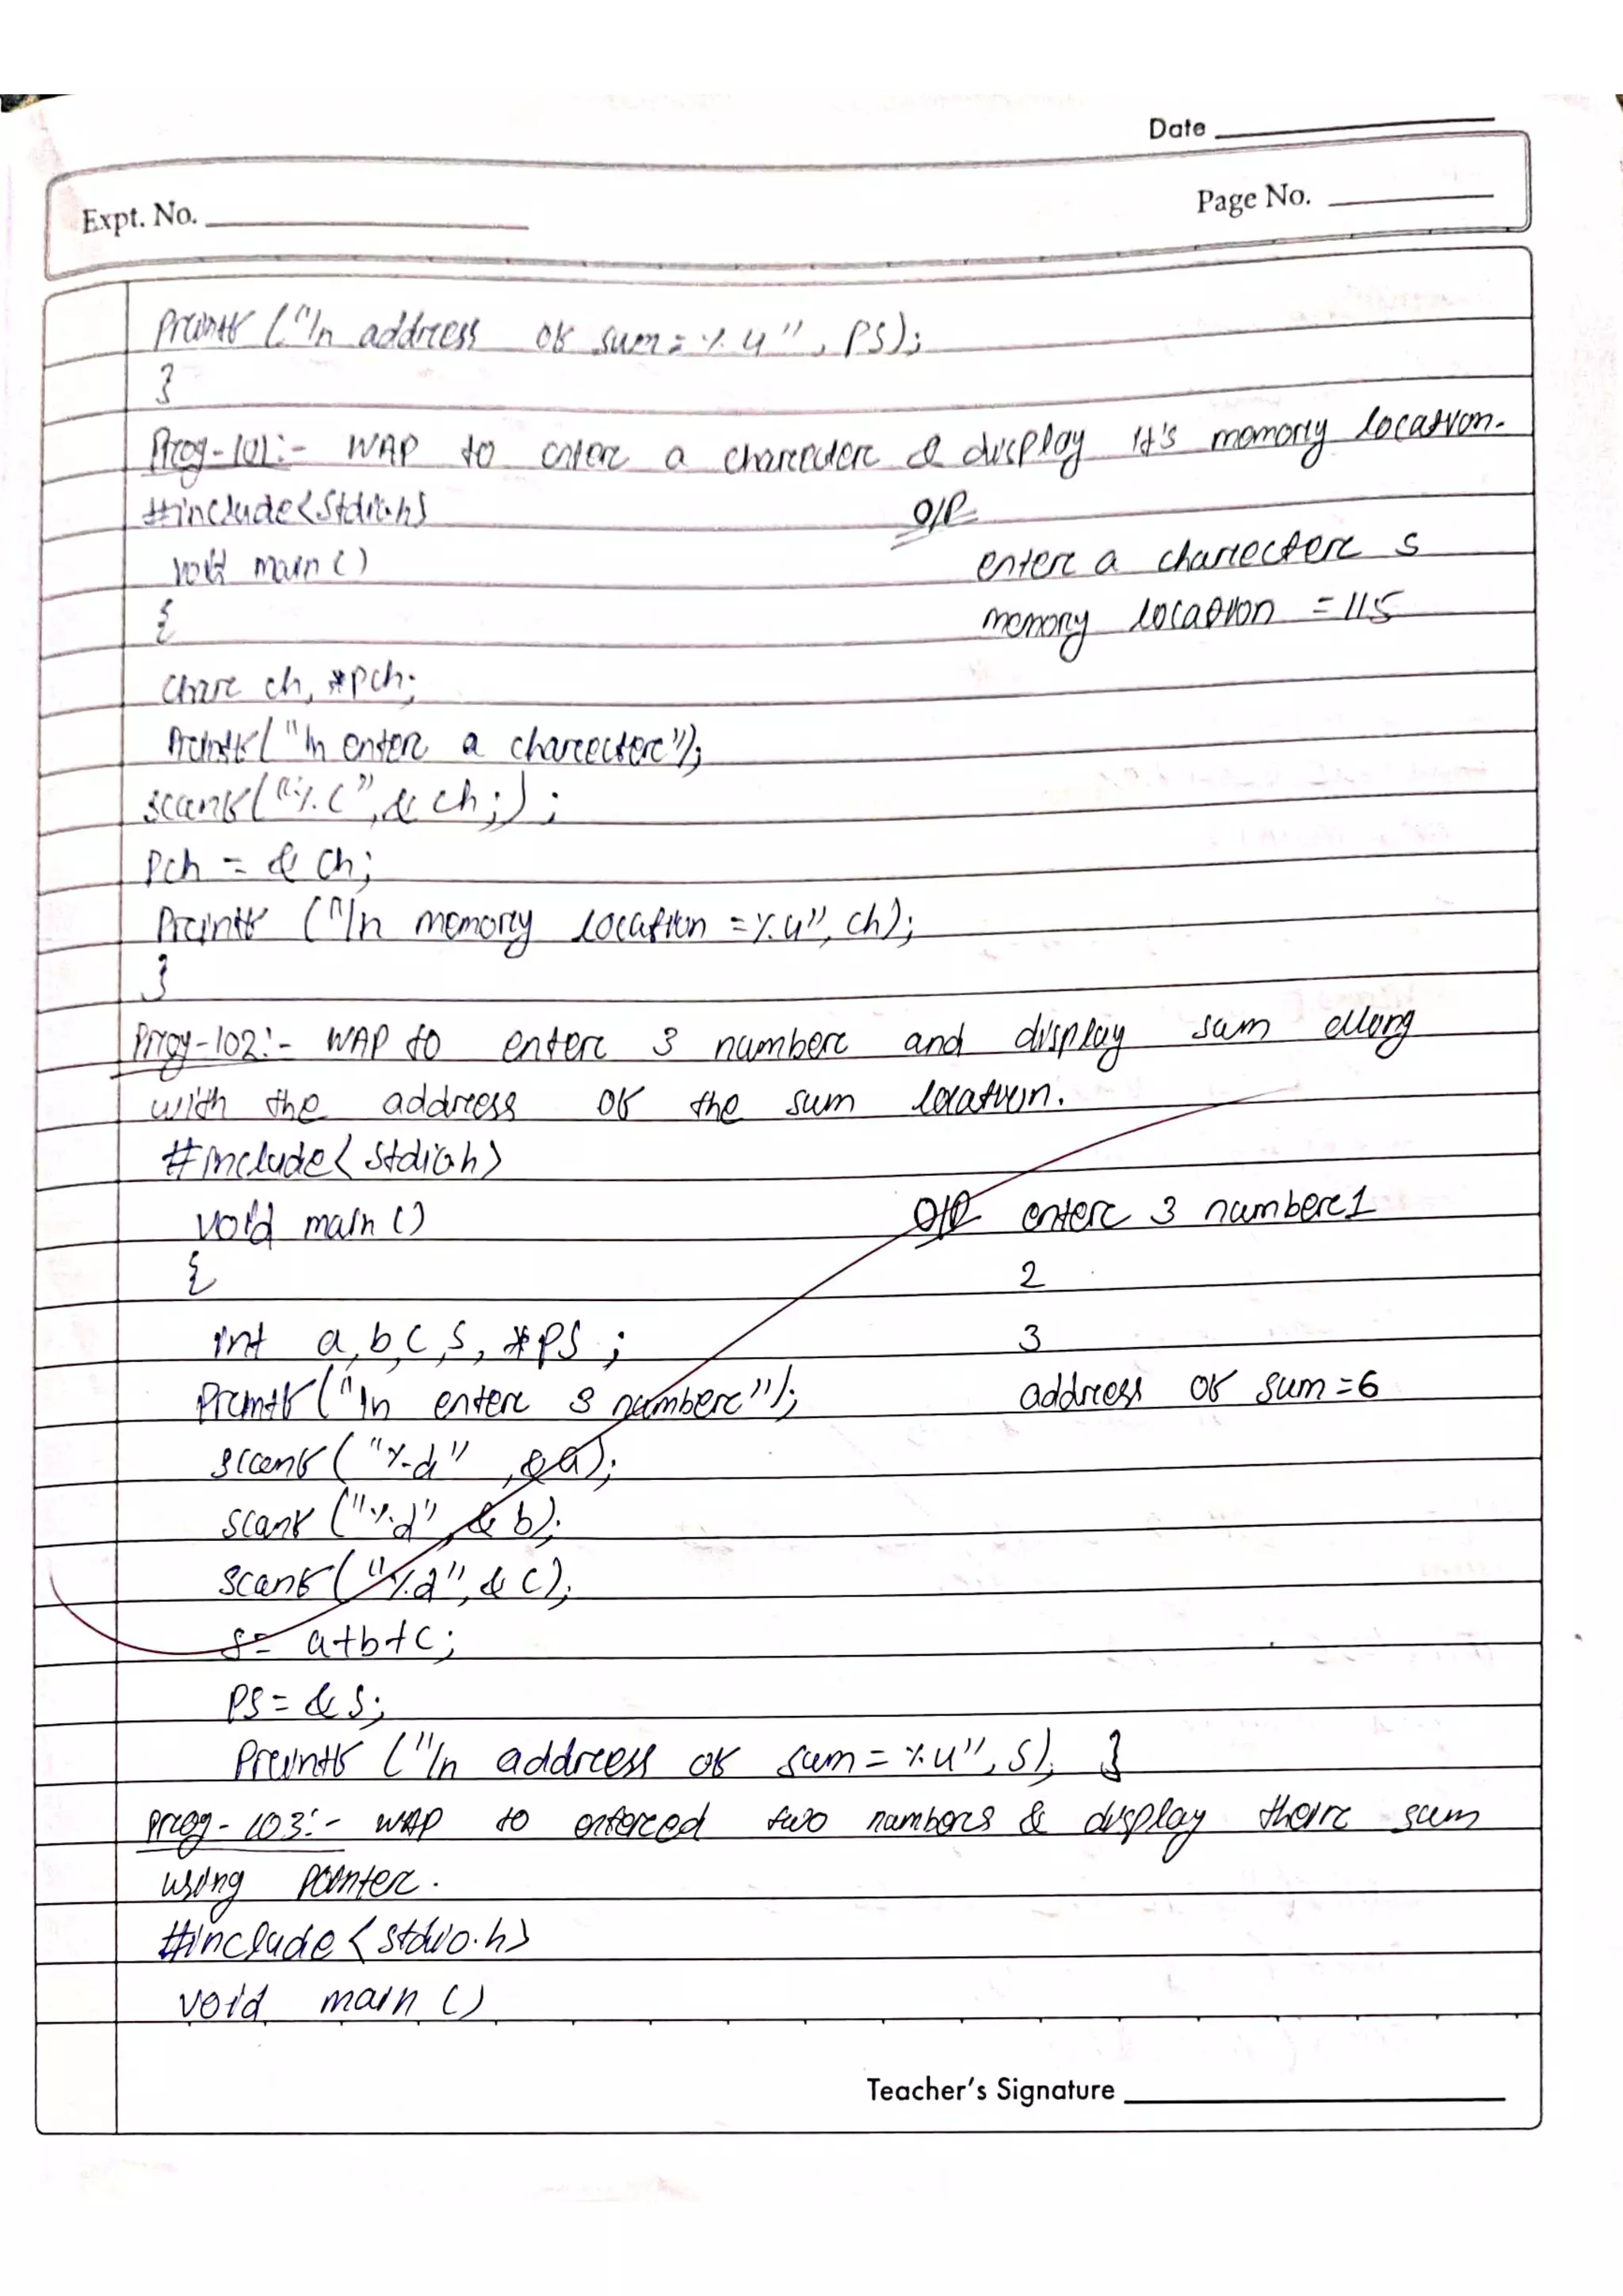 Date
Expt. No.
Page No.
Printf ("\n address of sum = %u", PS);
}
Prog-101:- WAP to enter a charecter & display it's memory location.
#include<stdio.h>
O/P
void main ()
enter a charecter s
{
memory location = 115
Char ch, *pch;
Printf("\n enter a charecter");
scanf("%c", & ch;);
Pch = & Ch;
Printf ("\n memory location = %u", ch);
}
Prog-102:- WAP to enter 3 number and display sum ellong
with the address of the sum location.
#include< stdio.h>
void main ()
O/P enter 3 number 1
{
2
int a, b, c, s, *PS ;
3
Printf("\n enter 3 number");
address of sum = 6
scanf ( "%d" , &a);
scanf ("%d", & b);
scanf ( "%d", & c);
s = a+b+c;
PS = & S;
Printf ("\n address of sum = %u", S); }
Prog-103:- WAP to entered two numbers & display their sum
using pointer.
#include <stdio.h>
void main ()
Teacher's Signature